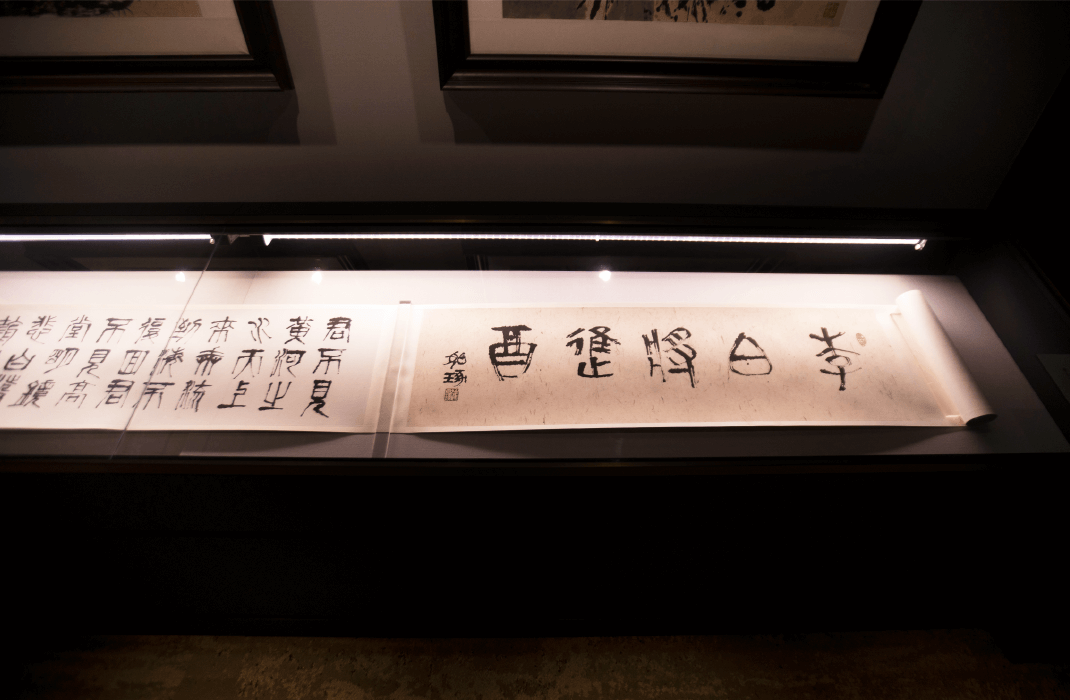 李白將進酉
君不見
黃河之
水天上
來奔流
到海不
復回君
不見高
堂明鏡
悲白